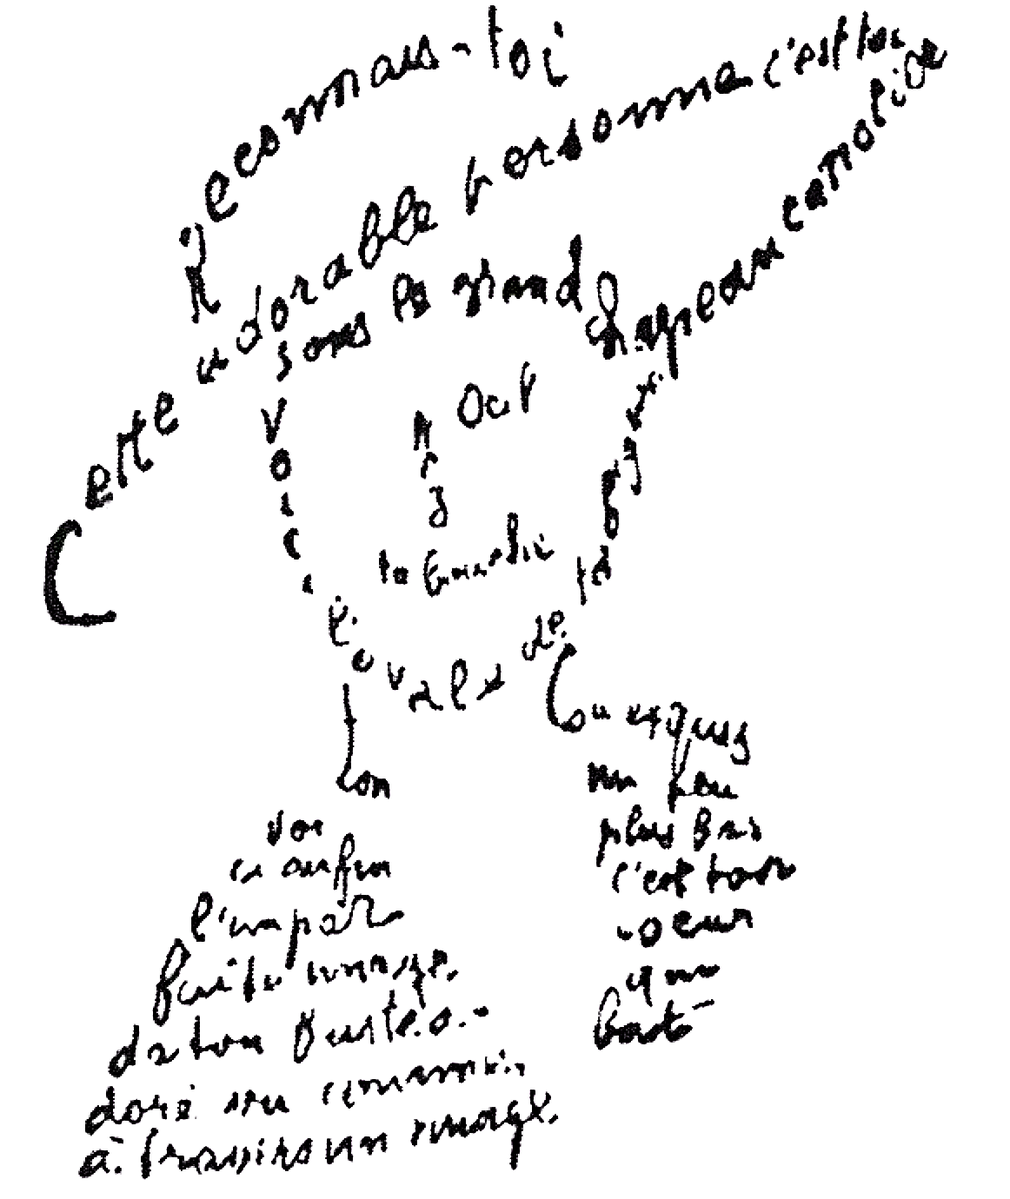 Reconnais-toi
Cette adorable personne c'est toi
sous le grand chapeau canotier
Oeil
Nez
ta bouche
Voici
l'ovale de
ta
figure
Ton
cou exquis
voi
ci enfin
l'impar
faite image
de ton buste a
doré vu comme
à travers un nuage
un peu
plus bas
c'est ton
coeur
qui
bat